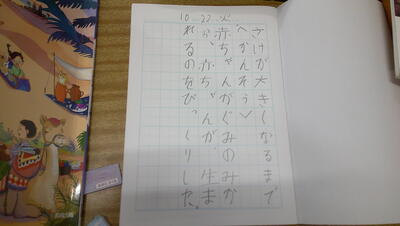 10.22.火
さけが大きくなるまで
〈かんそう〉
赤ちゃんがぐみのみか
ら、赤ちゃんが、生ま
れるのをびっくりした。